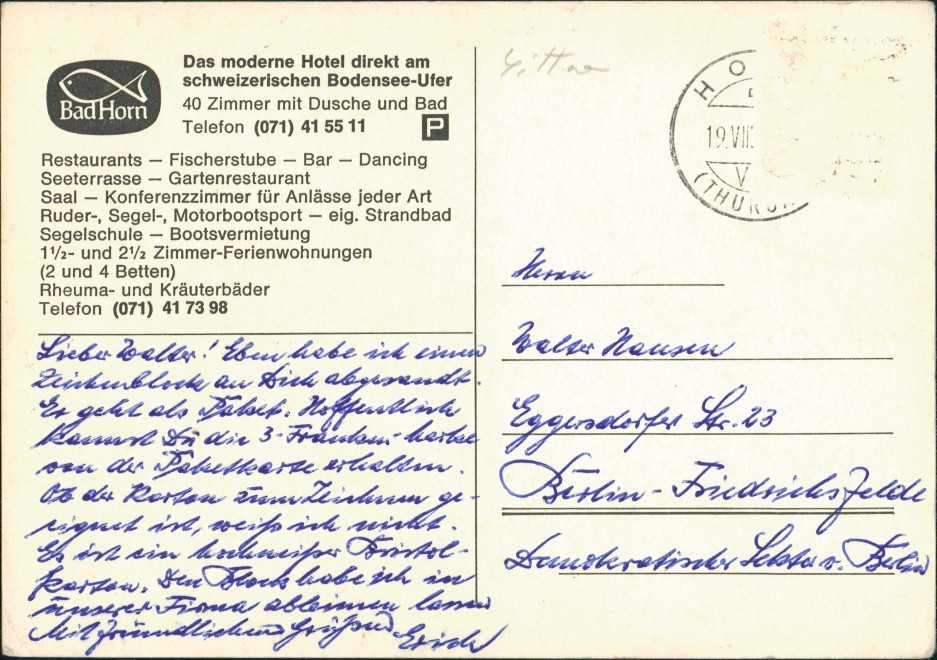 Bad Horn
Das moderne Hotel direkt am
schweizerischen Bodensee-Ufer
40 Zimmer mit Dusche und Bad
Telefon (071) 41 55 11
P
Restaurants — Fischerstube — Bar — Dancing
Seeterrasse — Gartenrestaurant
Saal — Konferenzzimmer für Anlässe jeder Art
Ruder-, Segel-, Motorbootsport — eig. Strandbad
Segelschule — Bootsvermietung
1½- und 2½ Zimmer-Ferienwohnungen
(2 und 4 Betten)
Rheuma- und Kräuterbäder
Telefon (071) 41 73 98
Lieber Walter! Eben habe ich einen
Zeichenblock an Dich abgesandt.
Er geht als Paket. Hoffentlich
kannst Du die 3-Franken-Marke
von der Paketkarte erhalten.
Ob der Karton zum Zeichnen ge-
eignet ist, weiß ich nicht.
Es ist ein hochweißer Bristol-
karton. Den Block habe ich in
unserer Firma ableimen lassen
Mit freundlichen Grüßen Erich
HO
19.VII
V
(THUR
Herrn
Walter Hausen
Eggersdorfer Str. 23
Berlin-Friedrichsfelde
Demokratischer Sektor v. Berlin